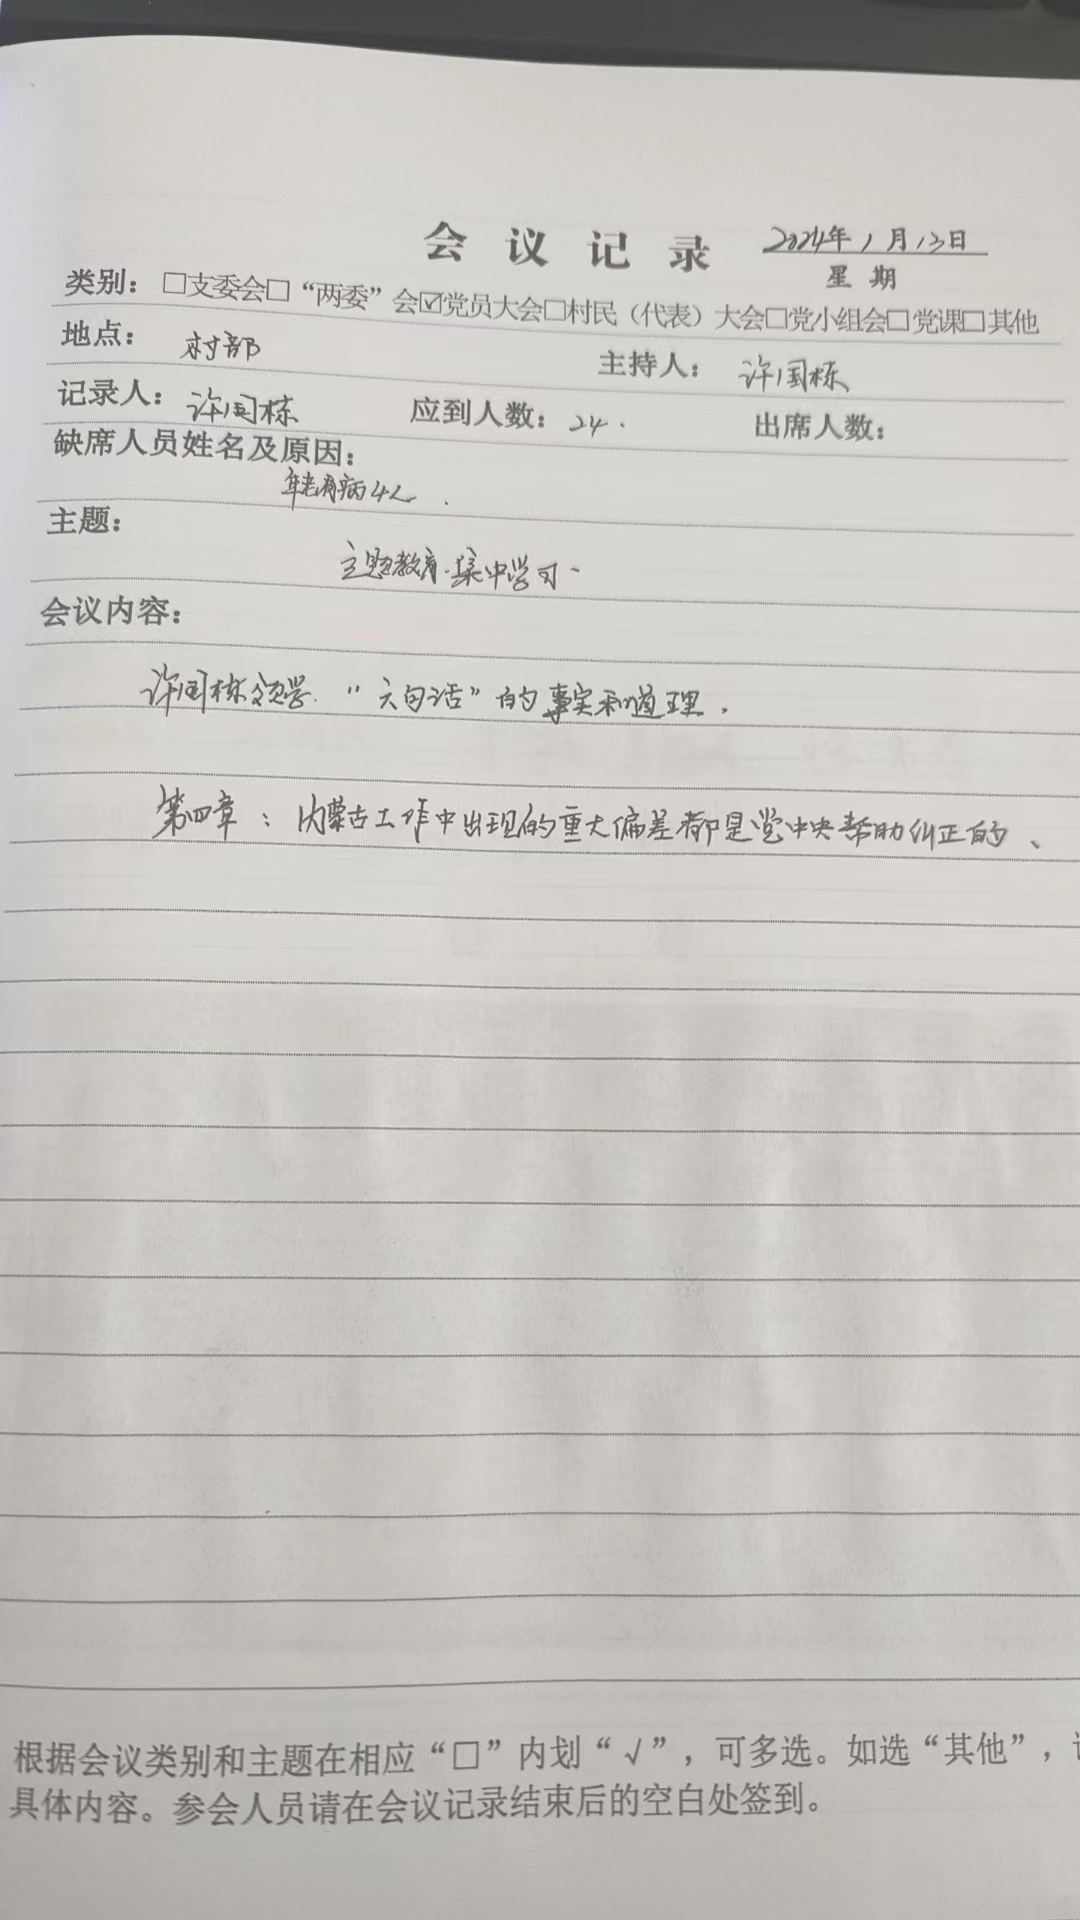 会议记录 2024年1月13日
星期
类别：□支委会□“两委”会☑党员大会□村民（代表）大会□党小组会□党课□其他
地点： 村部 主持人： 许国栋
记录人： 许国栋 应到人数： 24. 出席人数：
缺席人员姓名及原因：
年老有病4人.
主题：
主题教育.集中学习、
会议内容：
许国栋领学. “六句话”的事实和道理.
第四章：内蒙古工作中出现的重大偏差都是党中央帮助纠正的、
根据会议类别和主题在相应“□”内划“√”，可多选。如选“其他”，
具体内容。参会人员请在会议记录结束后的空白处签到。